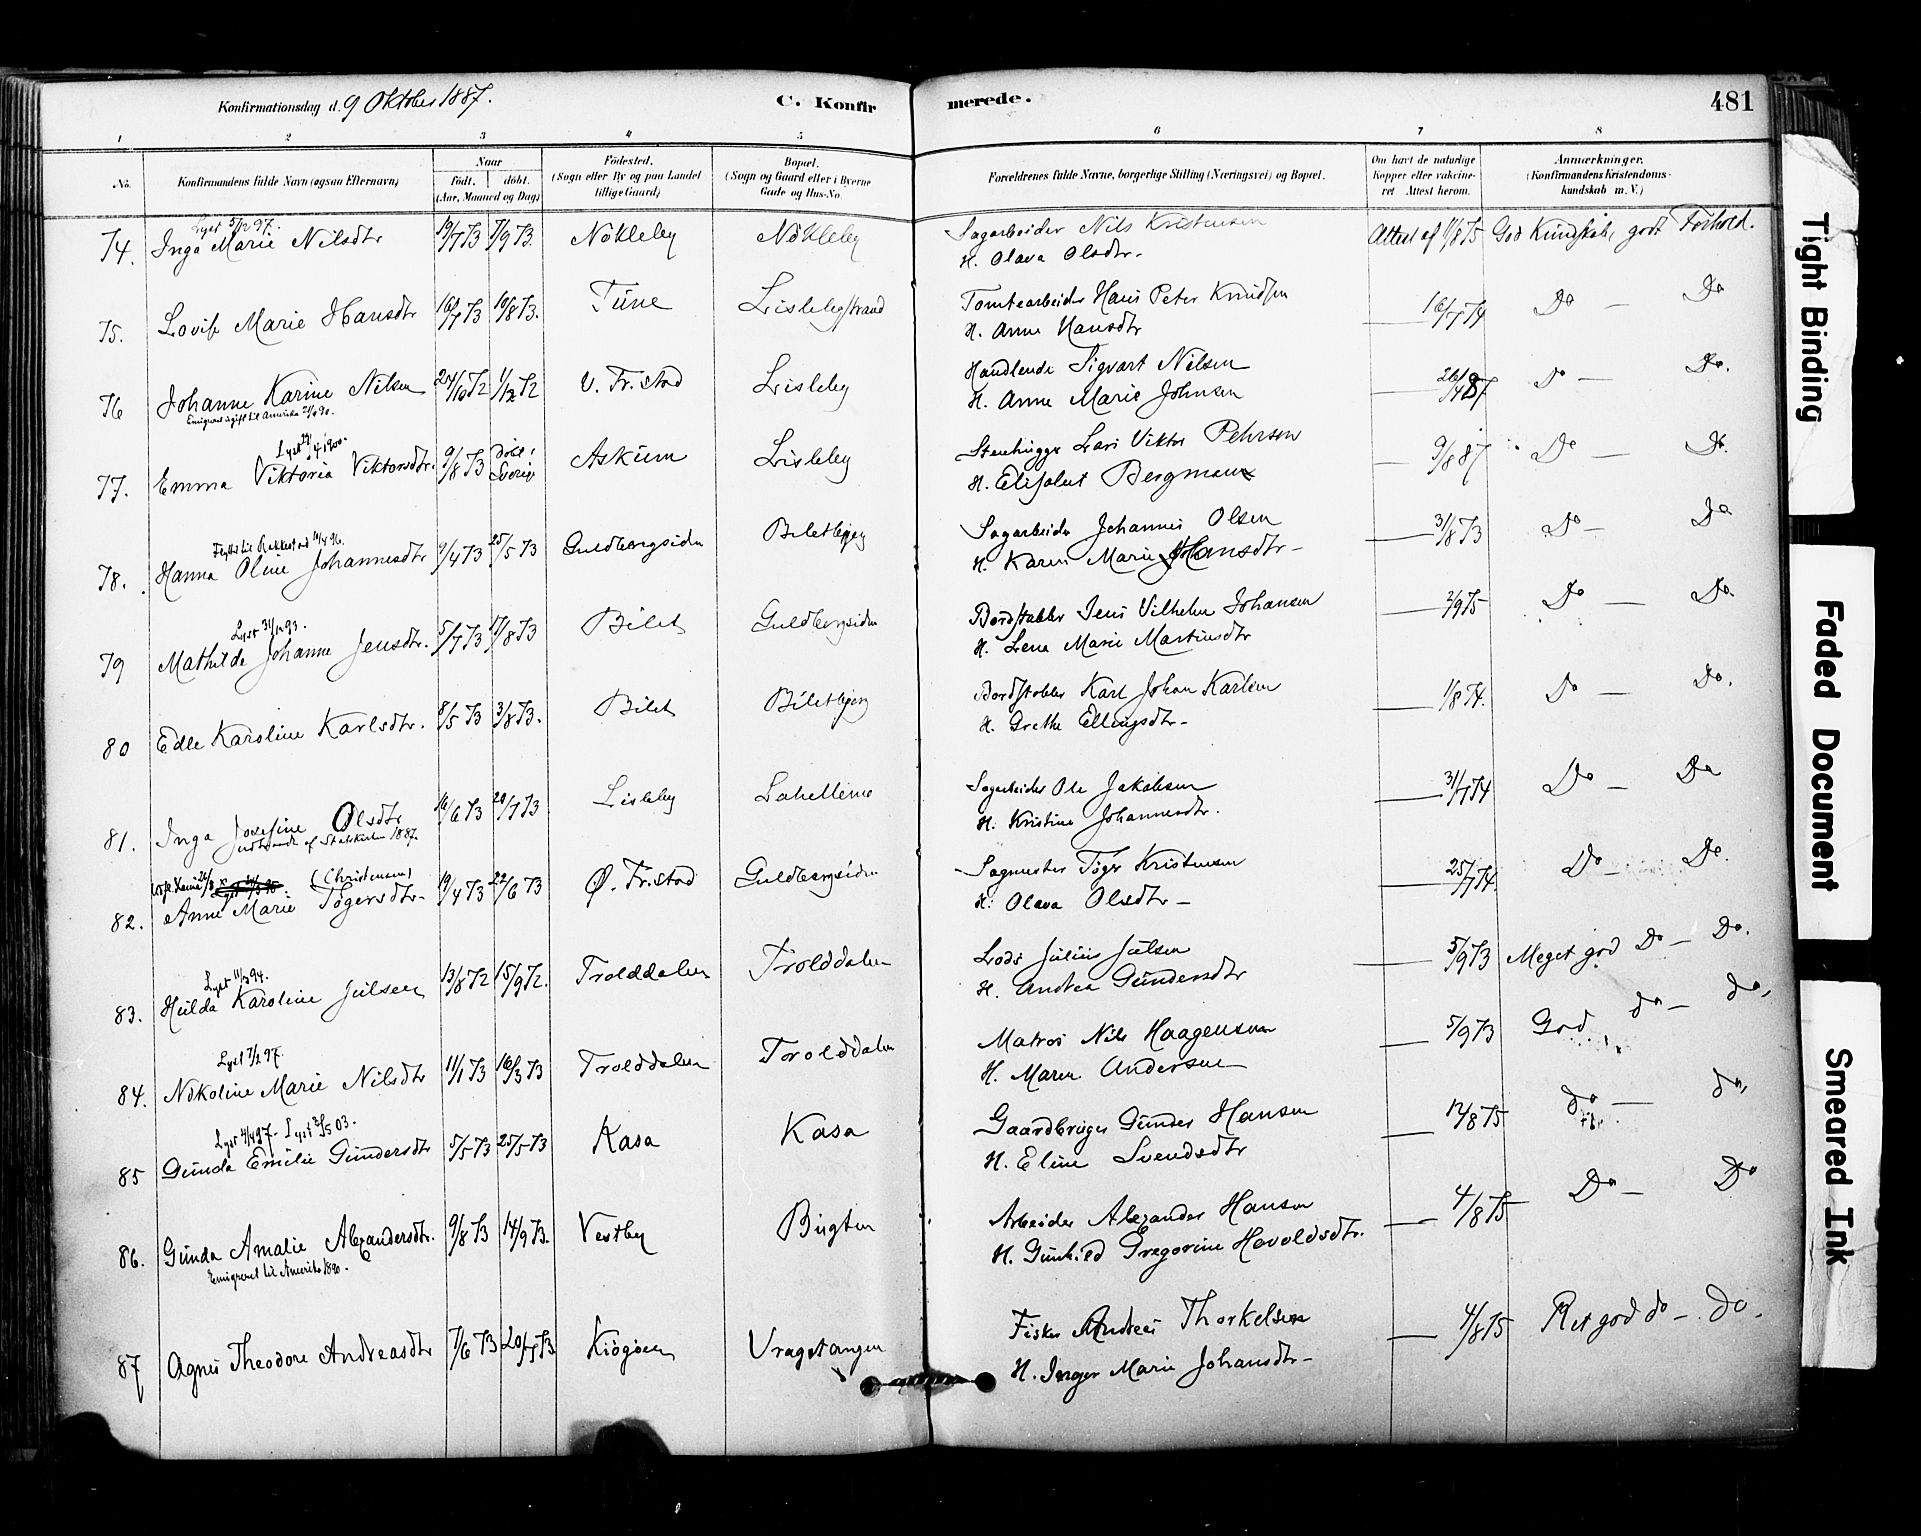 Konfirmationsdag d. 9 Oktober 1887.
C. Konfirmerede.
481
1 2 3 4 5 6 7 8
No.
Konfirmandens fulde Navn (ogsaa Efternavn)
Naar
Født. døbt.
(Aar, Maaned og Dag)
Fødested.
(Sogn eller By og paa Landet
tillige Gaard)
Bopæl.
(Sogn og Gaard eller i Byerne
Gade og Hus-No.
Forældrenes fulde Navne, borgerlige Stilling (Næringsvei) og Bopæl.
Om havt de naturlige
Kopper eller vakcine-
ret Attest herom.
Anmærkninger.
(Konfirmandens Kristendoms-
kundskab m. V.)
Lyst 5/12 97.
74. Inga Marie Nilsdtr 19/7 73 7/9 73. Nökleby Nökleby Sagarbeider Nils Kristensen Attest af 11/8 75 God Kundskab, godt Forhold.
H. Olava Olsdtr.
75. Lovise Marie Hansdtr 16/7 73 10/8 73. Tune Lislebystrand Tomtearbeider Hans Peter Knudsen — 16/7 74 Do — Do
H. Anne Hansdtr
76 Johanne Karine Nilsen 24/10 72 1/12 72 V. Fr.stad Lisleby Handlende Sigvart Nilsen — 26/4 87 Do — Do.
Emigreret ugift til Amerika 2/4 90.
H. Anne Marie Johnsen
Lyst 29/4 1900.
77. Emma Viktoria Viktorsdtr. 9/8 73 Döbt i Sverig Askum Lisleby Stenhugger Lars Viktor Pehrson — 9/8 87 Do — Do.
H. Elisabet Bergman
Flyttet til Rakkestad 14/4 96.
78. Hanna Oline Johannesdtr 9/4 73 25/5 73 Guldbergsiden Biletbyen Sagarbeider Johannes Olsen — 31/8 73 Do — Do
H. Karen Marie Hansdtr —
Lyst 31/12 93.
79 Mathilde Johanne Jensdtr. 5/7 73 17/8 73 Bilet Guldbergsiden Bordstabler Jens Vilhelm Johansen — 2/9 75 Do — Do.
H. Lena Marie Martinsdtr
80 Edle Karoline Karlsdtr. 8/5 73 3/8 73. Bilet Biletbyen Bordstabler Karl Johan Karlsen — 1/8 74. Do — Do.
H. Grethe Ellingsdtr —
81. Inga Josefine Olsdtr 16/6 73 20/7 73 Lisleby Lahellemo Sagarbeider Ole Jakobsen — 31/7 74 Do — Do
udtraadt af Statskirken 1887.
H. Kristine Johannesdtr.
(Christensen)
82. Anne Marie Tögersdtr — 19/4 73 22/6 73 Ø. Fr.stad Guldbergsiden Sagmester Töger Kristensen — 25/7 74 Do — Do.
H. Olava Olsdtr —
Lyst 11/3 94.
83. Hulda Karoline Julsen 13/8 72 15/9 72. Trolddalen Trolddalen Lods Julius Julsen — 5/9 73 Meget god Do — Do.
H. Andrea Gundersdtr
Lyst 7/2 97.
84. Nikoline Marie Nilsdtr 11/1 73 16/3 73 Trolddalen Trolddalen Matros Nils Haagensen — 5/9 73 God do — do,
H. Maren Andersen
Lyst 4/4 97 - Lyst 3/5 03.
85 Gunda Emilie Gundersdtr 5/5 73 25/5 73 Kasa Kasa Gaardbruger Gunder Hansen — 12/8 75 do — do,
H. Eline Svendsdtr
86. Gunda Amalie Alexandersdtr. 9/8 73 14/9 73. Vestby Bugten Arbeider Alexander Hansen — 4/8 75 Do — Do
Emigreret til Amerika 1890.
H. Gunhild Gregorine Havoldsdtr.
87 Agnes Theodore Andreasdtr 7/6 73 20/7 73 Kiøgøen Vragetangen Fisker Andreas Thorkelsen — 4/8 75 Ret god do — do.
H. Inger Marie Johansdtr —
Tight Binding
Faded Document
Smeared Ink